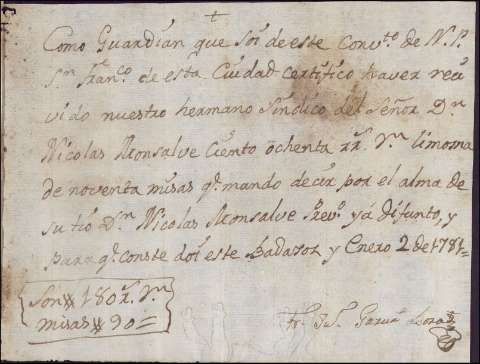 Como Guardian que soi de este Conv.to de N. P.
S.n Fran.co de esta Ciudad certifico haver reci
vido nuestro hermano sindico del Señor D.n
Nicolas Monsalve ciento ochenta rr.s v.n limosna
de noventa misas q.e mando decir por el alma de
su tio D.n Nicolas Monsalve Prev.o ya difunto, y
para q.e conste doi este Badajoz y Enero 2 de 1781=
Son # 180 r.s v.n
misas # 90=
Fr. Garcia